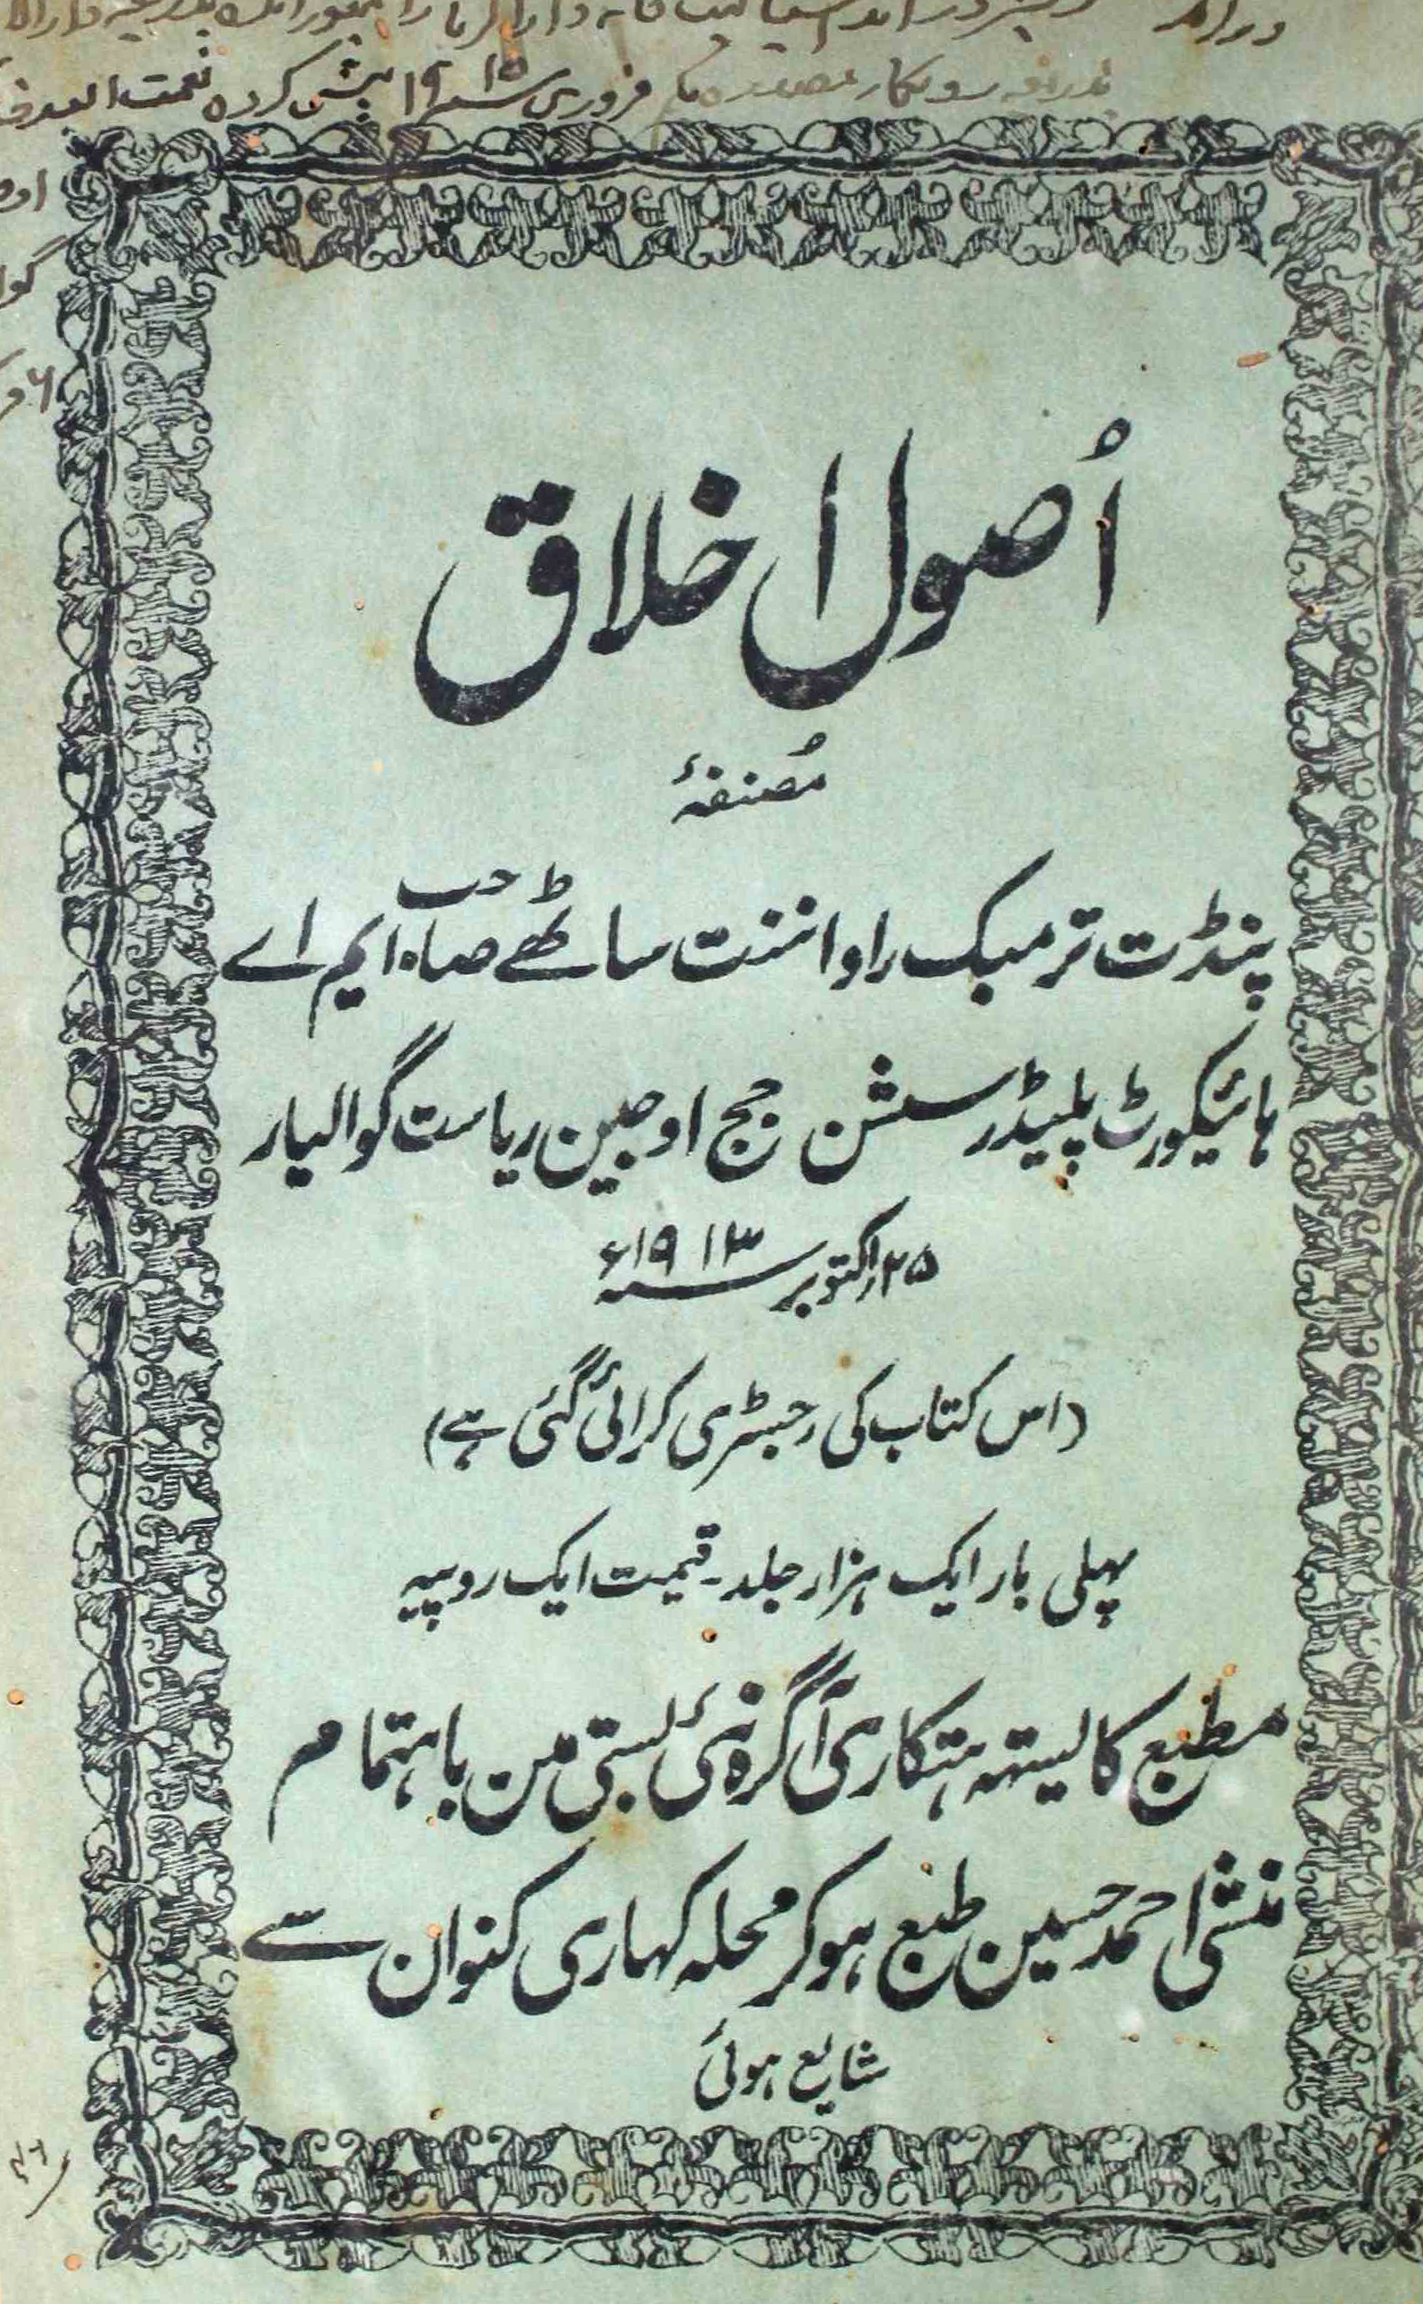 فروری سنہ ۱۹۱۵ پیش کردہ نعمت اللہ
اُصول اخلاق
مُصنفۂ
پنڈت ترمبک راو اننت ساٹھے صاحب ایم اے
ہائیکورٹ پلیڈر سشن جج اوجین ریاست گوالیار
۲۵/اکتوبر سنہ ۱۹۱۳ء
(اس کتاب کی رجسٹری کرائی گئی ہے)
پہلی بار ایک ہزار جلد ۔ قیمت ایک روپیہ
مطبع کالیستھ ہتکاری آگرہ نئی بستی من باہتمام
منشی احمد حسین طبع ہوکر محلہ کہاری کنوان سے
شایع ہوئی